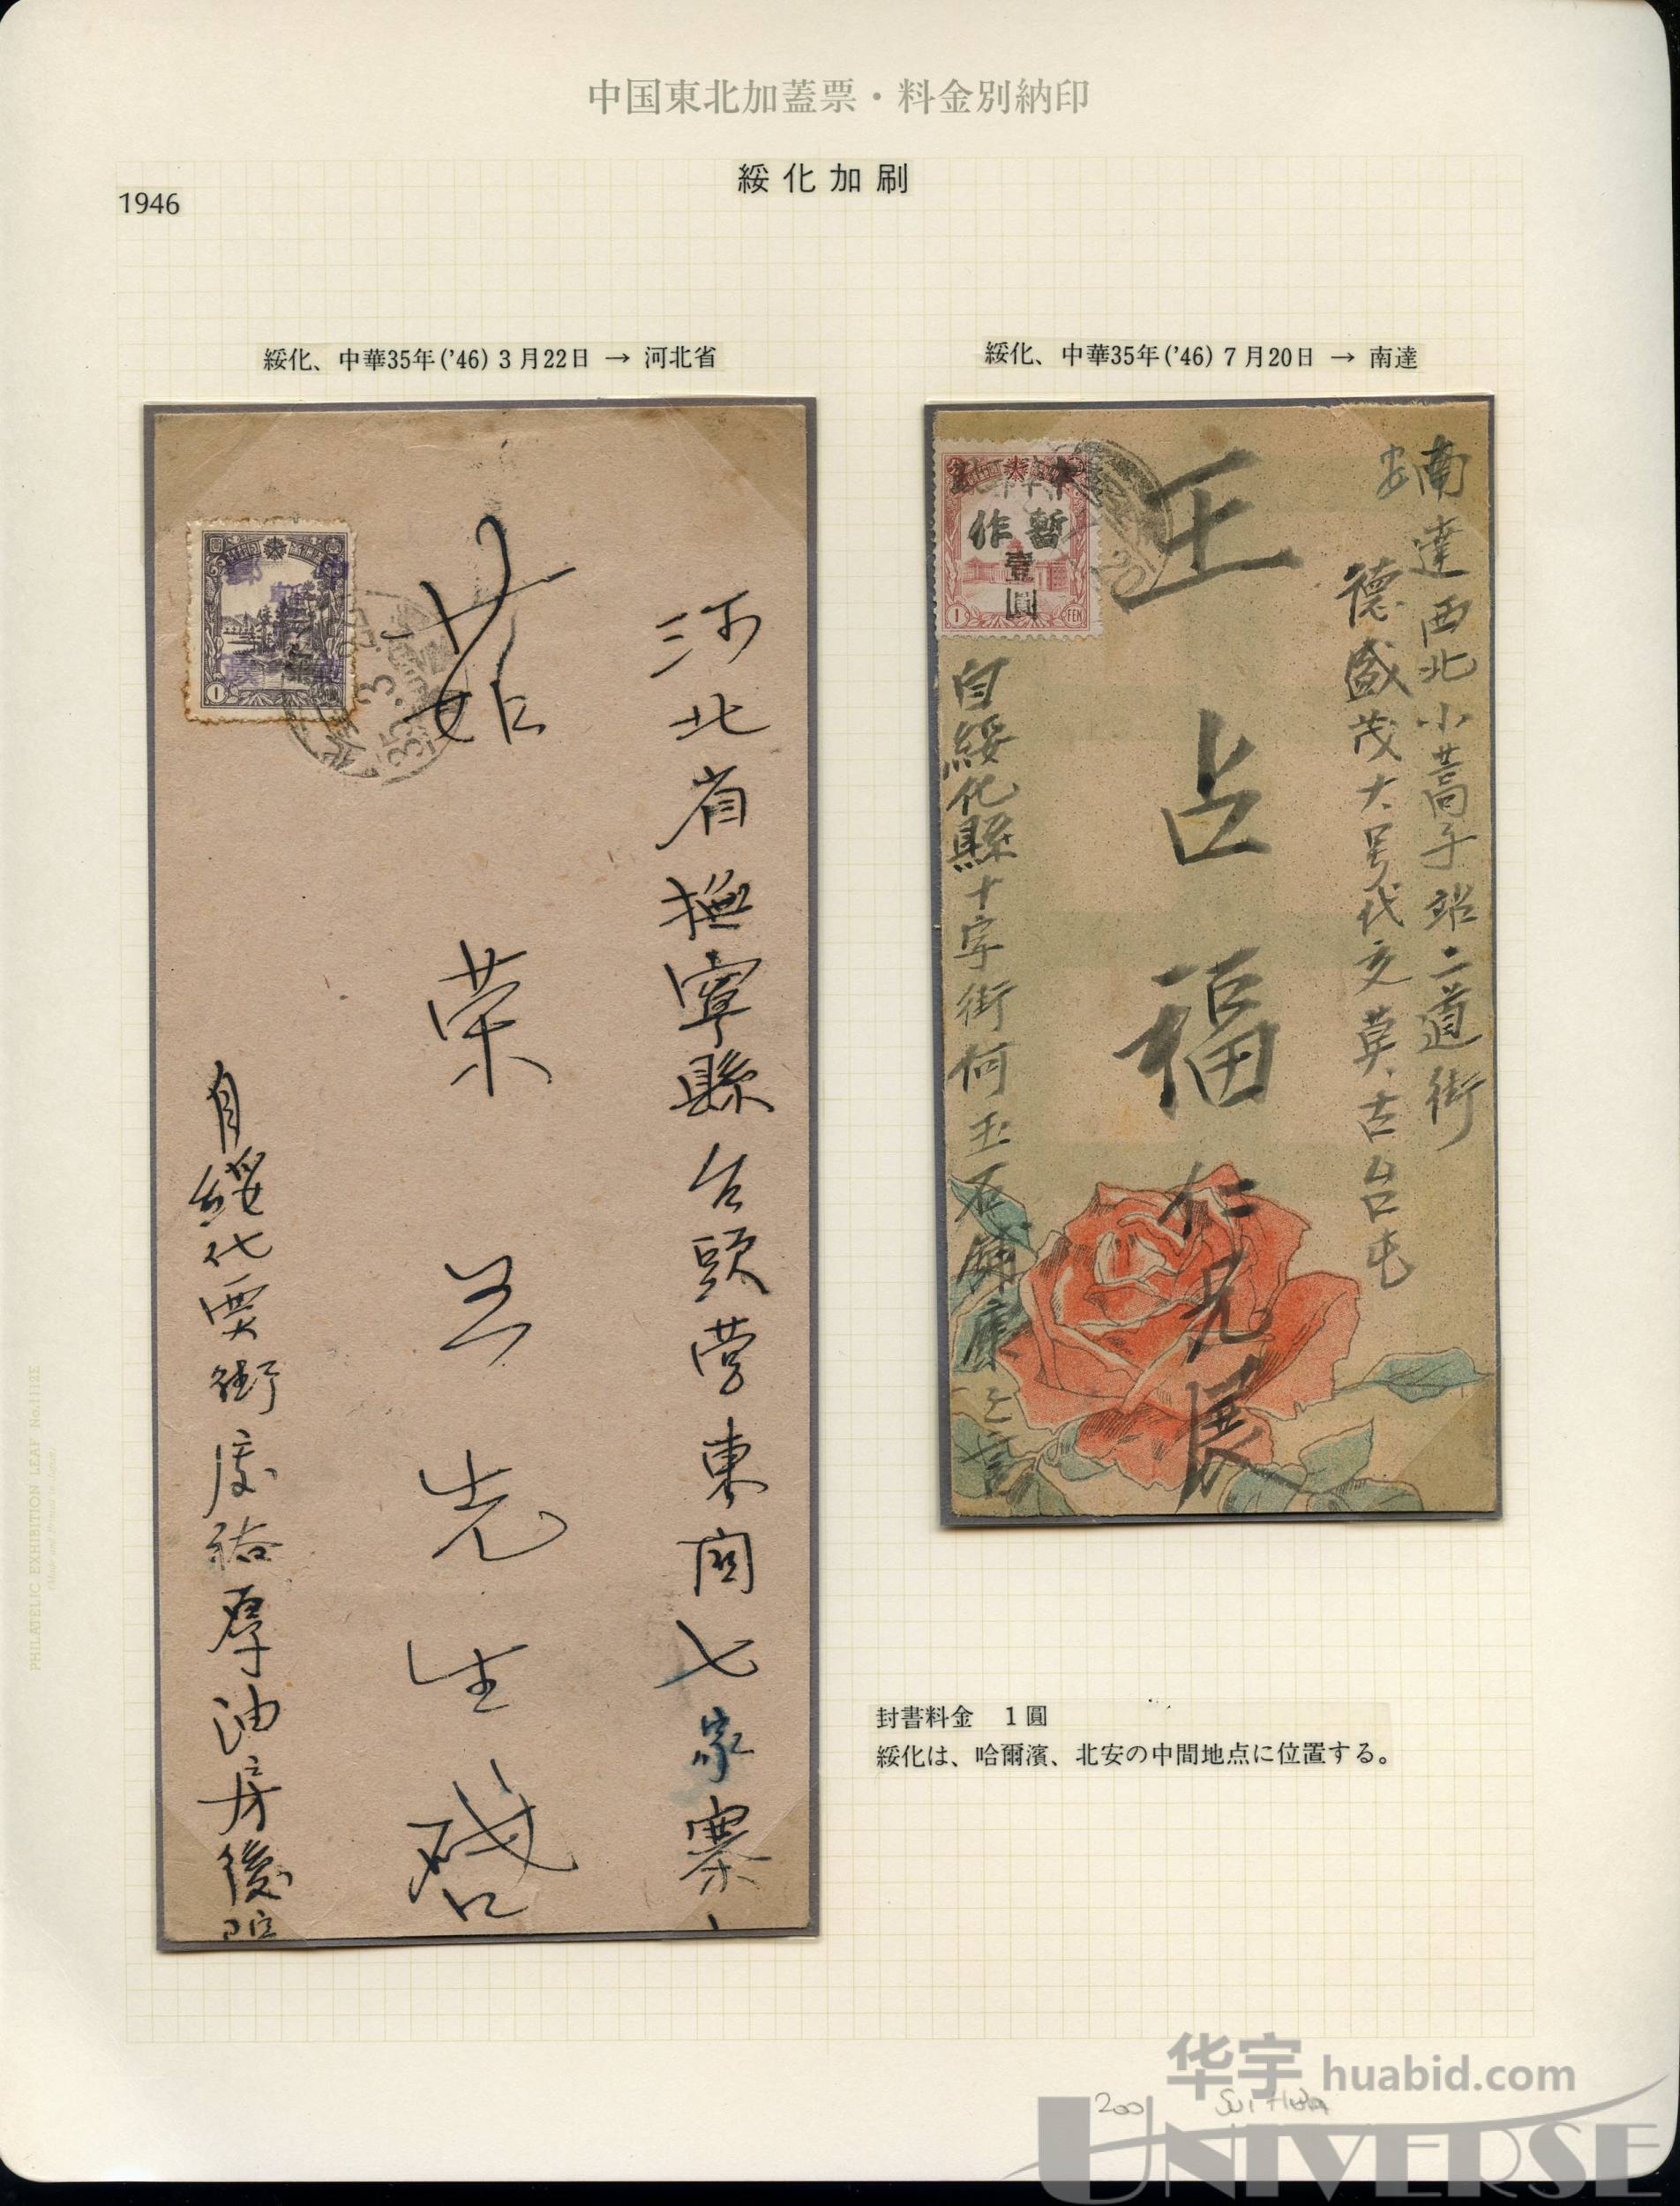 中国東北加蓋票・料金別納印
綏化加刷
1946
綏化、中華35年('46) 3月22日 → 河北省
綏化、中華35年('46) 7月20日 → 南達
河北省撫寧縣台頭营東関七家寨
茹荣兰先生啓
自綏化
厚油房後院
35.3
1
南達西北小蒿子站二道街
德盛茂大号代交莫古台屯
王占福仁兄展
自綏化縣十字街何玉石
暫作
壹圓
1 FEN
20
封書料金　1圓
綏化は、哈爾濱、北安の中間地点に位置する。
PHILATELIC EXHIBITION LEAF No.1112E
200
Sui Hua
华宇 huabid.com
UNIVERSE